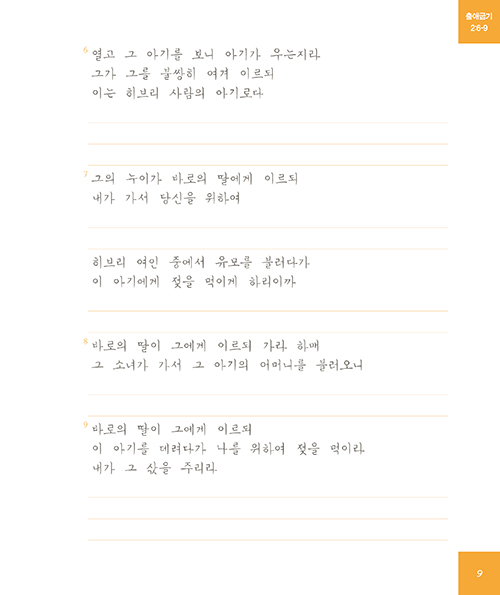 출애굽기
2:6-9
6 열고 그 아기를 보니 아기가 우는지라
그가 그를 불쌍히 여겨 이르되
이는 히브리 사람의 아기로다
7 그의 누이가 바로의 딸에게 이르되
내가 가서 당신을 위하여
히브리 여인 중에서 유모를 불러다가
이 아기에게 젖을 먹이게 하리이까
8 바로의 딸이 그에게 이르되 가라 하매
그 소녀가 가서 그 아기의 어머니를 불러오니
9 바로의 딸이 그에게 이르되
이 아기를 데려다가 나를 위하여 젖을 먹이라
내가 그 삯을 주리라
9